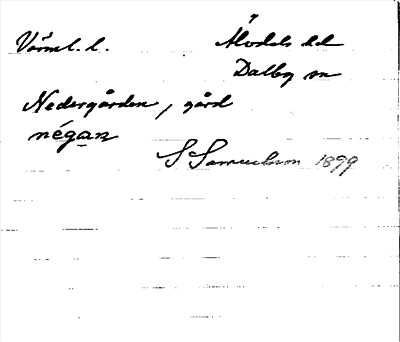 Värml. l. Älvdals hd
Dalby sn
Nedergården, gård
négan
S Samuelsson 1899